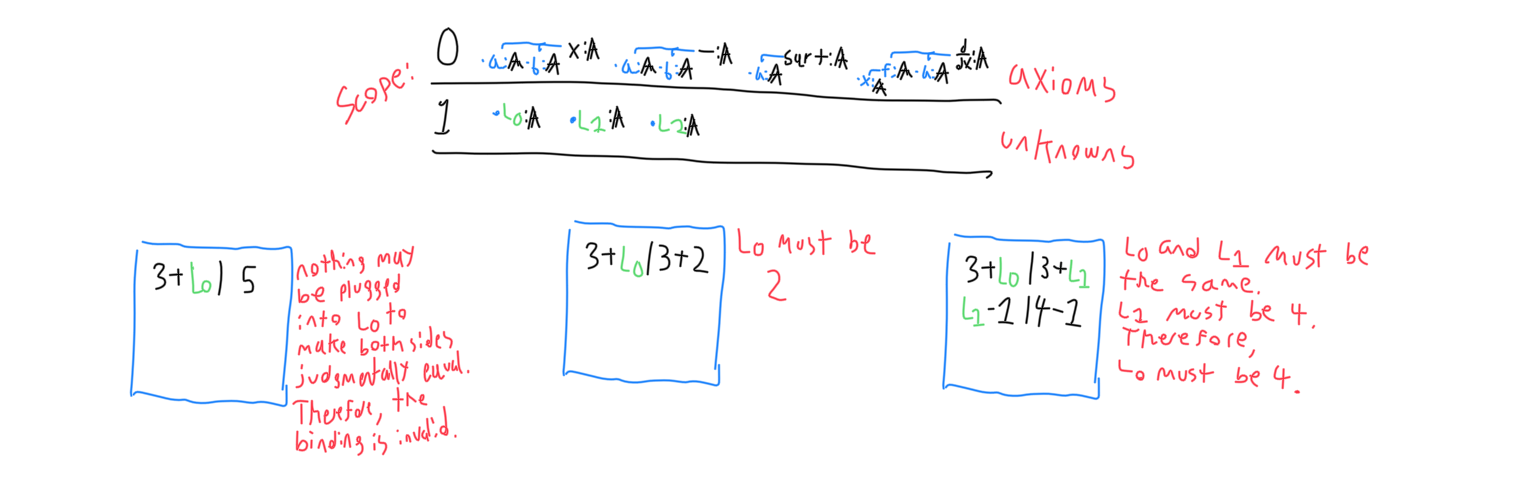 Scope:
0 ·a:𝔸 ·b:𝔸 x:𝔸 ·a:𝔸 ·b:𝔸 −:𝔸 ·a:𝔸 sqrt:𝔸 ·x:𝔸 f:𝔸 ·a:𝔸 d/dx:𝔸 axioms
1 ·L0:𝔸 ·L1:𝔸 ·L2:𝔸 unknowns
3+L0| 5
nothing may
be plugged
into L0 to
make both sides
judgmentally equal.
Therefore, the
binding is invalid.
3+L0|3+2
L0 must be
2
3+L0|3+L1
L1-1|4-1
L0 and L1 must be
the same.
L1 must be 4.
Therefore,
L0 must be 4.